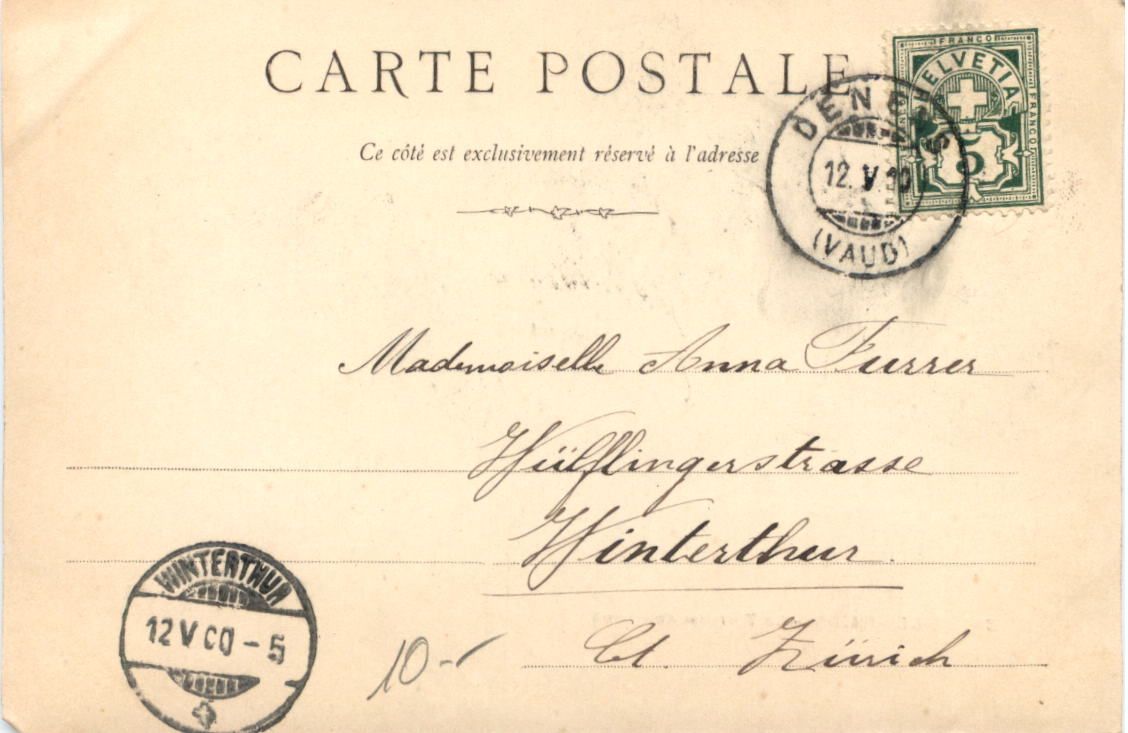 CARTE POSTALE
Ce côté est exclusivement réservé à l'adresse
FRANCO
HELVETIA
FRANCO
5
DENENS
12. V
(VAUD)
Mademoiselle Anna Furrer
Wülflingerstrasse
Winterthur.
Ct. Zürich
WINTERTHUR
12 V 00 - 5
10.-